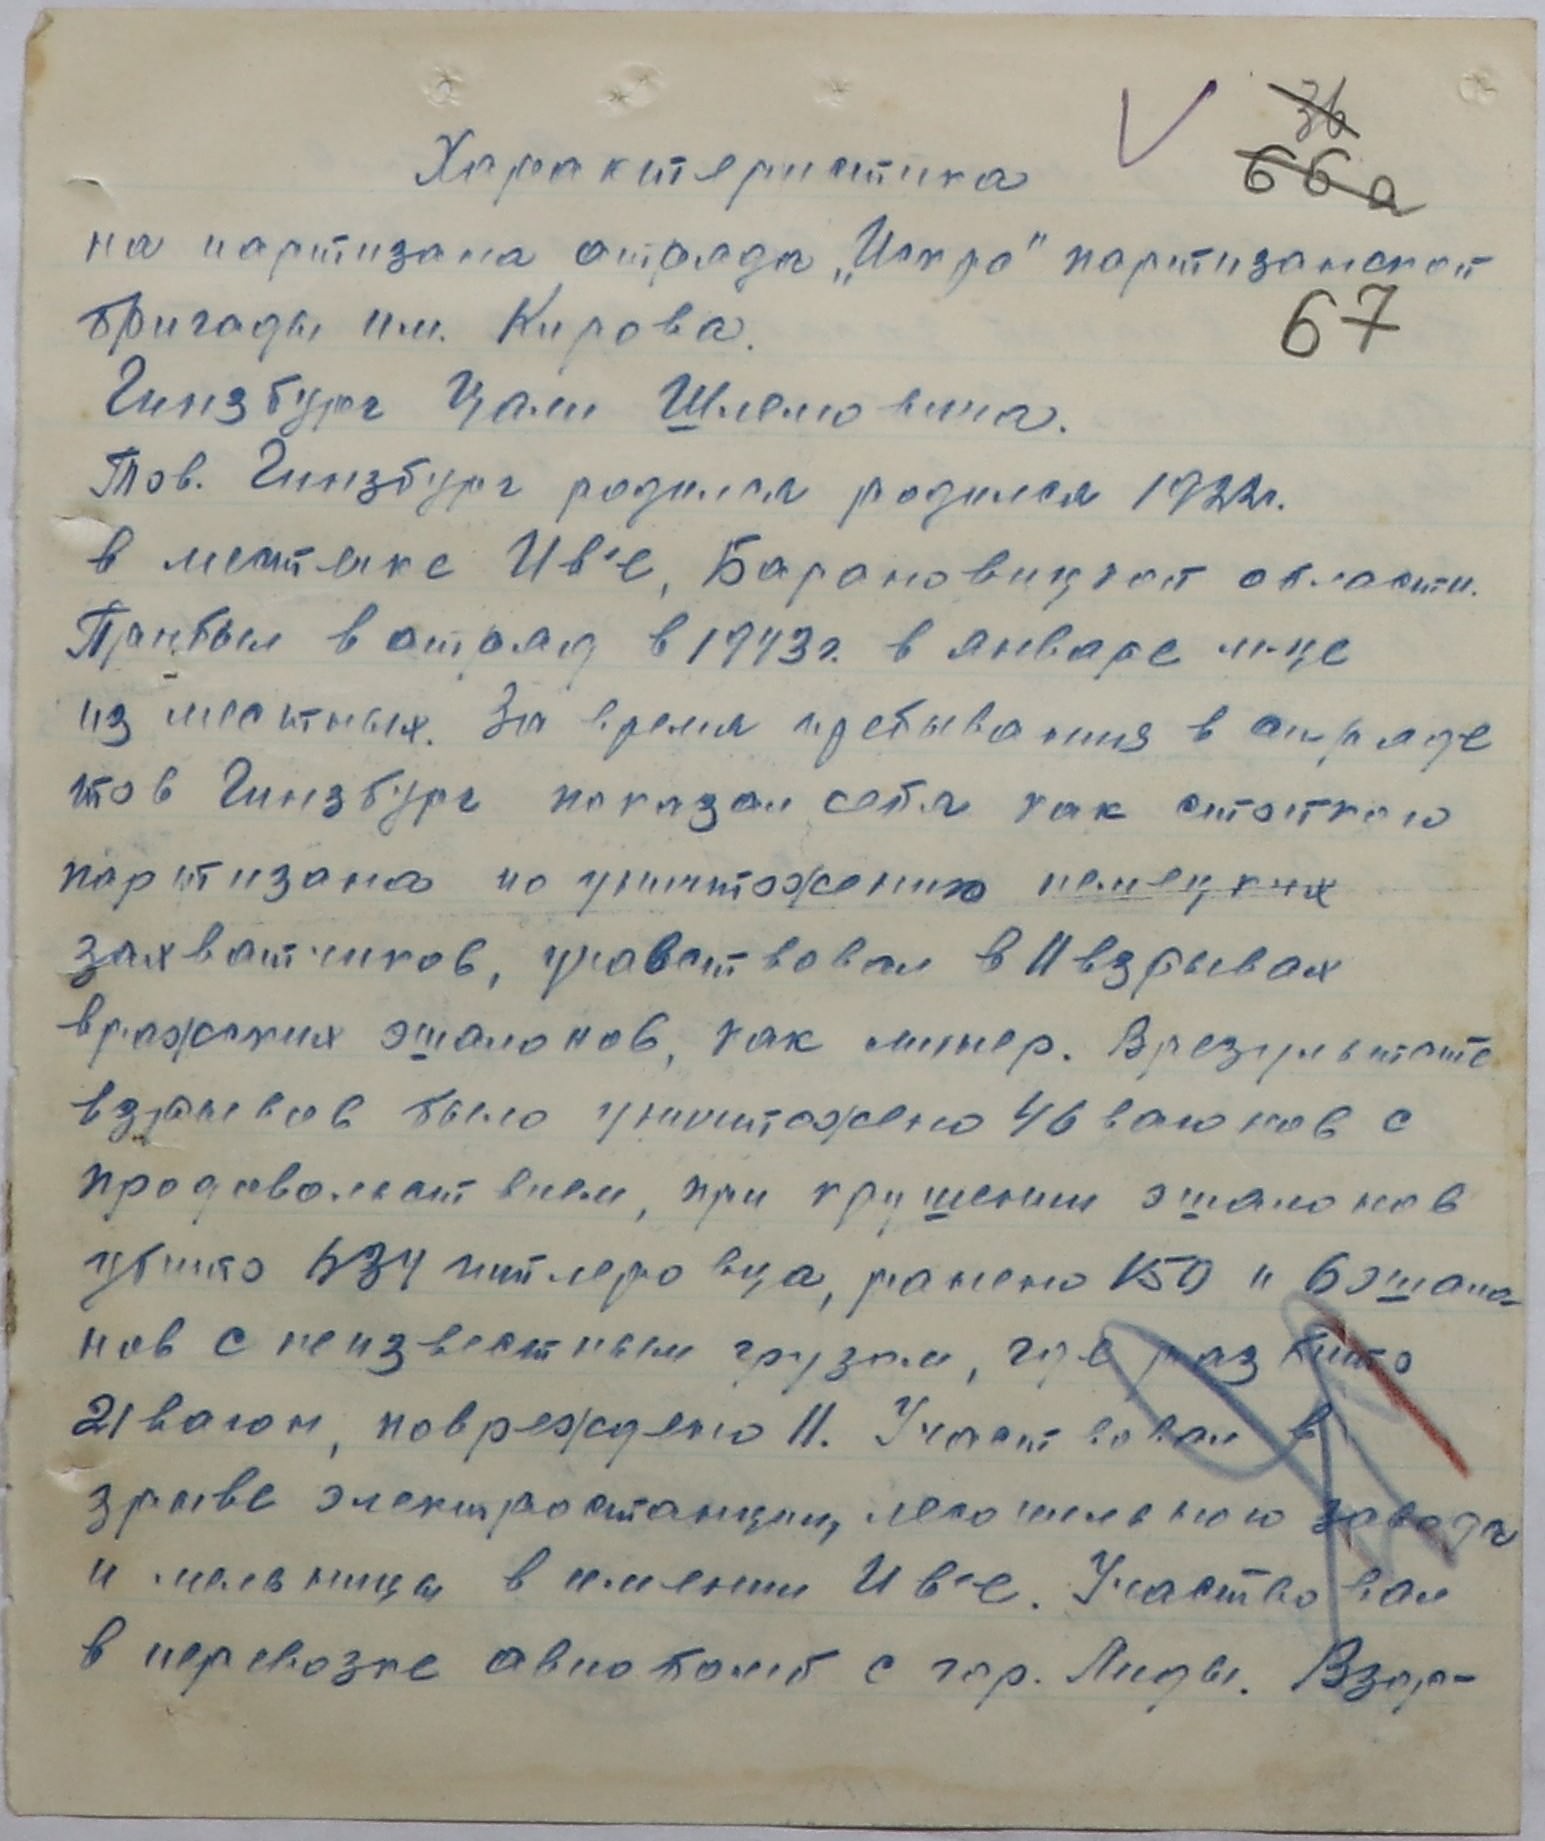 36
66а
Характеристика
на партизана отряда „Искра" партизанской
бригады им. Кирова.
67
Гинзбург Цали Шлемовича.
Тов. Гинзбург родился родился 1922г.
в местечке Ив'е, Барановицкой области.
Прибыл в отряд в 1943г. в январе м-це
из местных. За время пребывания в отряде
тов Гинзбург показал себя как стойкого
партизана по уничтожению немецких
захватчиков, участвовал в 11 взрывах
вражеских эшалонов, как минер. В результате
взрывов было уничтожено 46 вагонов с
продовольствием, при крушении эшалонов
убито 134 гитлеровца, ранено 150 и 6 эшало-
нов с неизвестным грузом, где разбито
21 вагон, повреждено 11. Участвовал в
зрыве электростанции, лесопильного завода
и мельницы в имении Ив'е. Участвовал
в перевозке авиобомб с гор. Лиды. Взор-